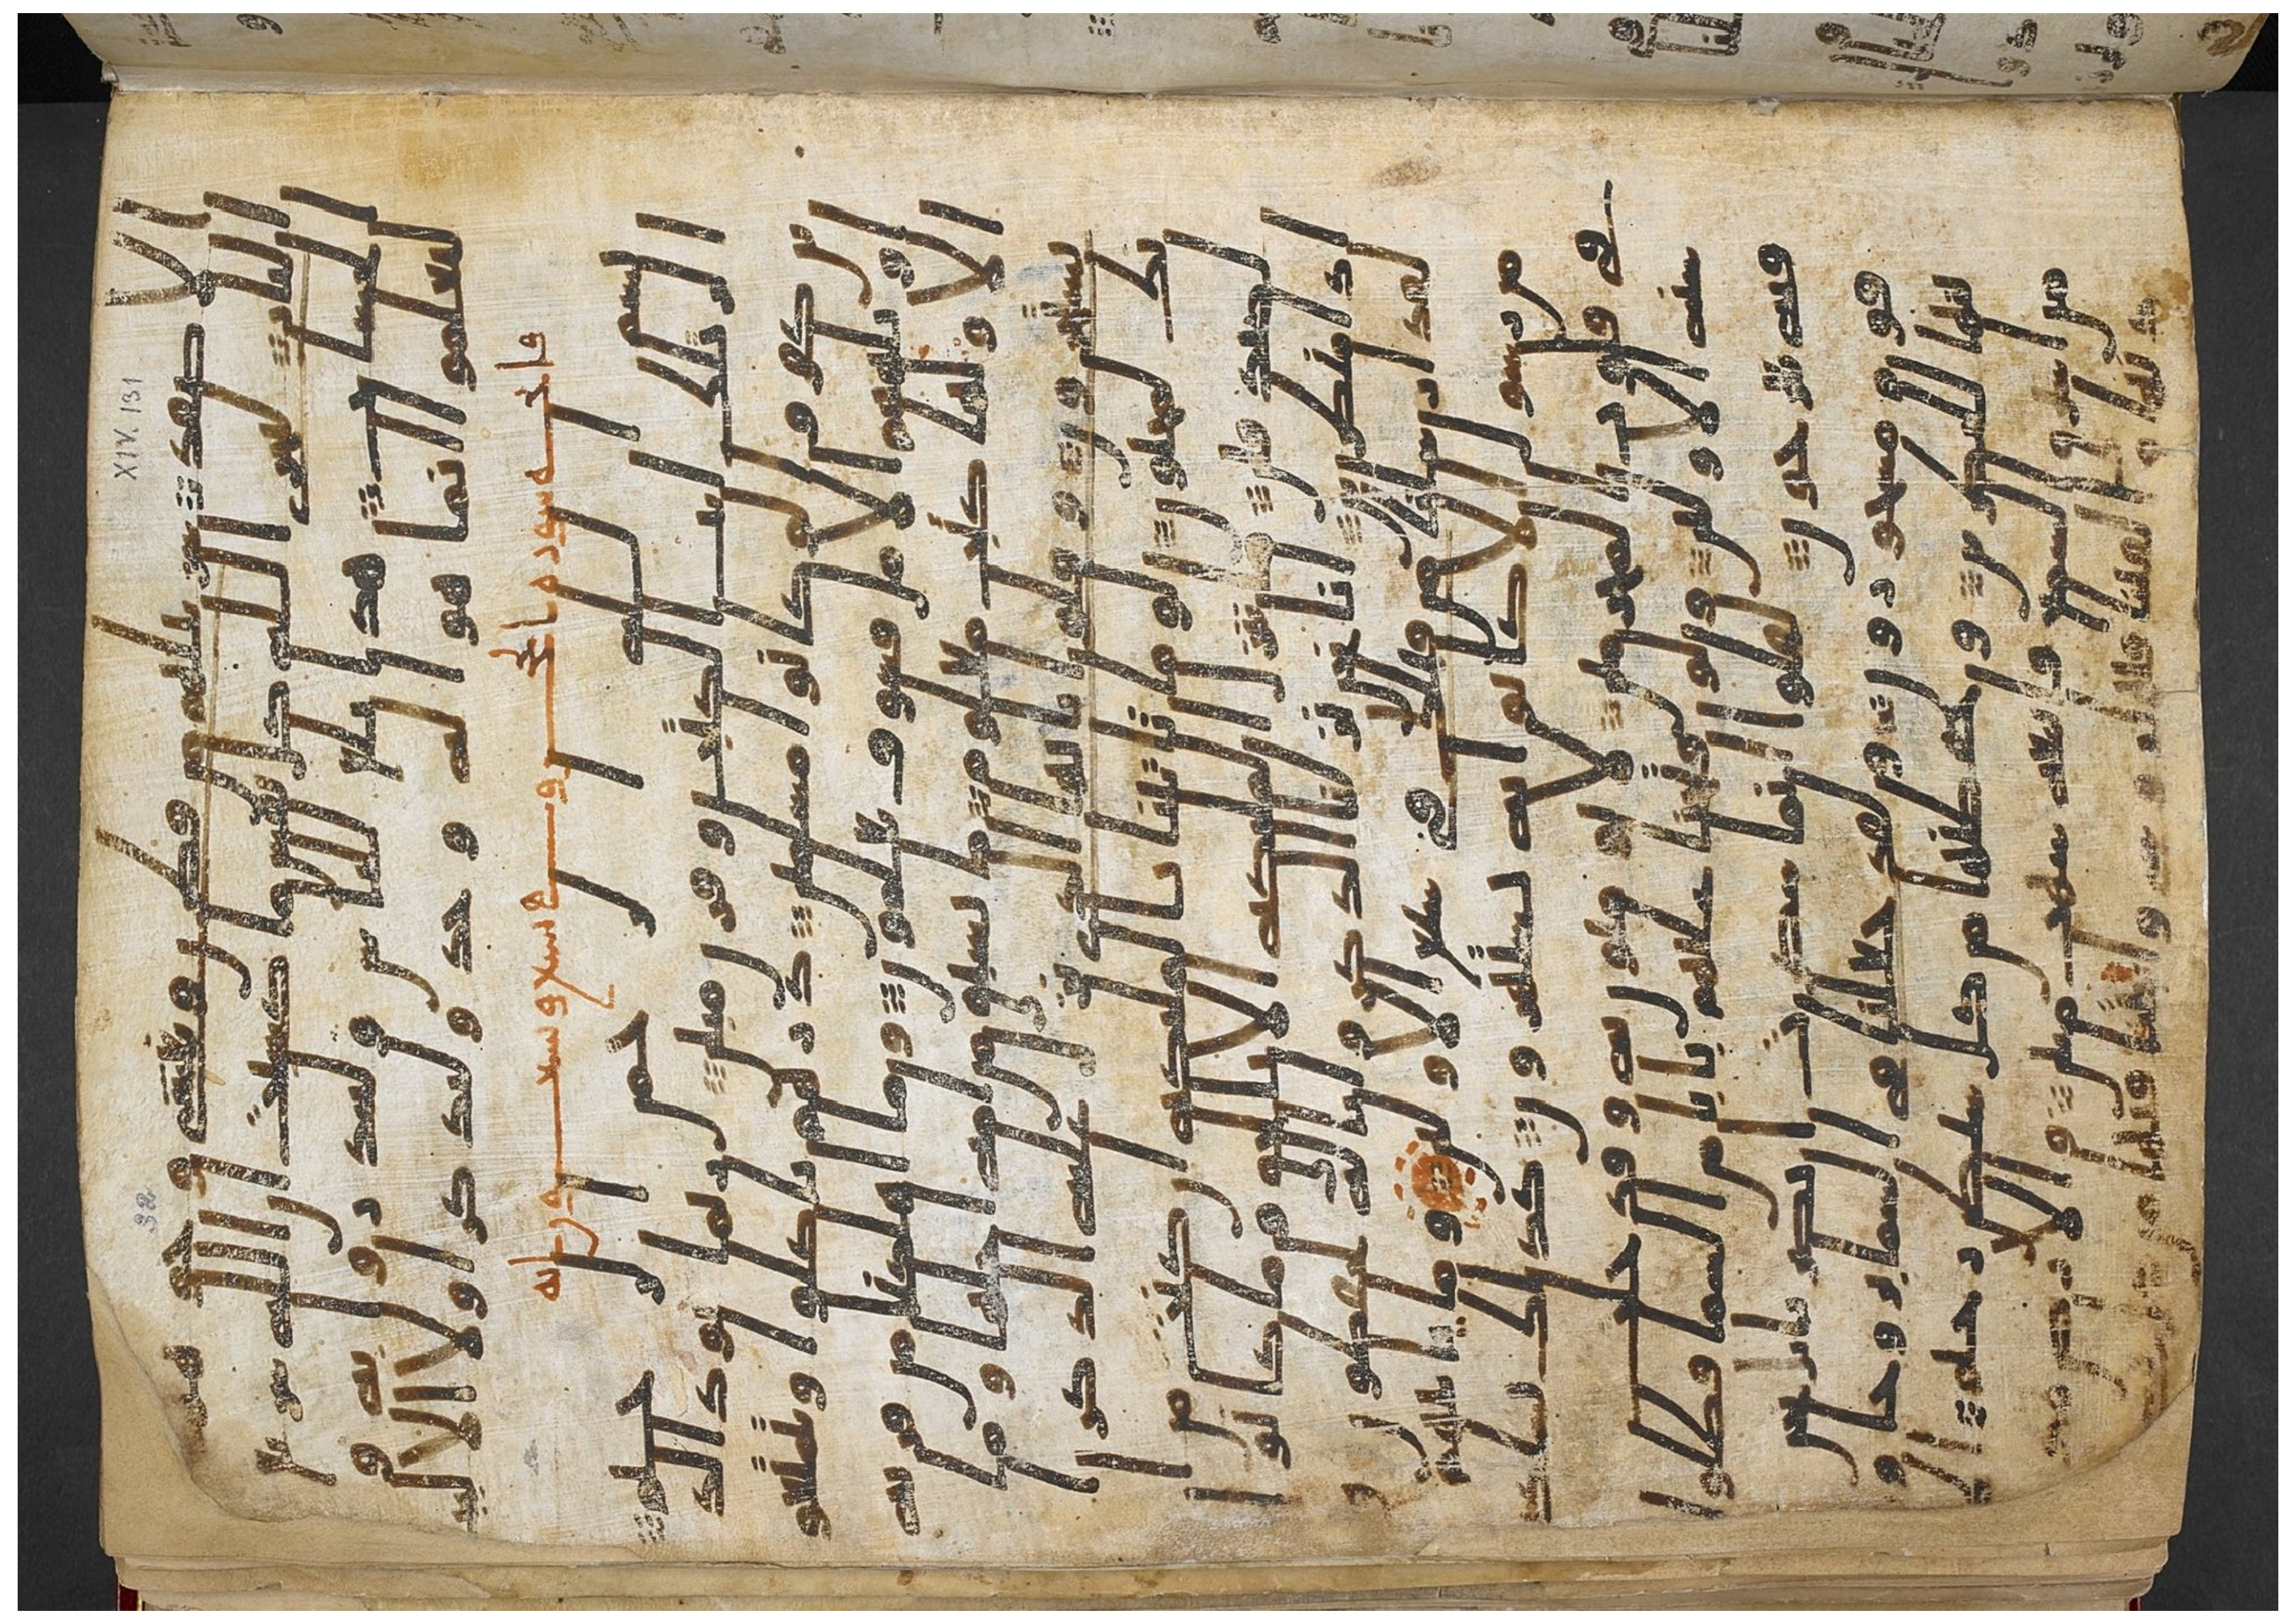 الاصفد سربيلهم من قطرن وتغشى وجوههم
النار ليجزي الله كل نفس ما كسبت ان الله سريع
الحساب هذا بلغ للناس ولينذروا به و
ليعلموا انما هو اله وحد وليذكر اولوا الالبب
بسم الله الرحمن الرحيم
الر تلك ايت الكتب وقرن مبين ربما يود الذ
ين كفروا لو كانوا مسلمين ذرهم ياكلوا ويتمتعوا
ويلههم الامل فسوف يعلمون وما اهلكنا من قريه
الا ولها كتب معلوم ما تسبق من امه اجلها وما
يستخرون وقلوا يايها الذي نزل عليه الذكر ا
نك لمجنون لو ما تاتينا بالملئكه ان كنت من ا
لصدقين ما ننزل الملئكه الا بالحق وما كانوا ا
ذا منظرين انا نحن نزلنا الذكر وانا له لحفظون و
لقد ارسلنا من قبلك في شيع الاولين وما ياتيهم
من رسول الا كانوا به يستهزون كذلك نسلكه
في قلوب المجرمين لا يومنون به وقد خلت
سنه الاولين ولو فتحنا عليهم بابا من السما فظلوا
فيه يعرجون لقلوا انما سكرت ابصرنا بل نحن
قوم مسحورون ولقد جعلنا في السما بروجا و
زينها للنظرين وحفظنها من كل شيطن رجيم الا
من استرق السمع فاتبعه شهب مبين والارض
XIV. 131
32